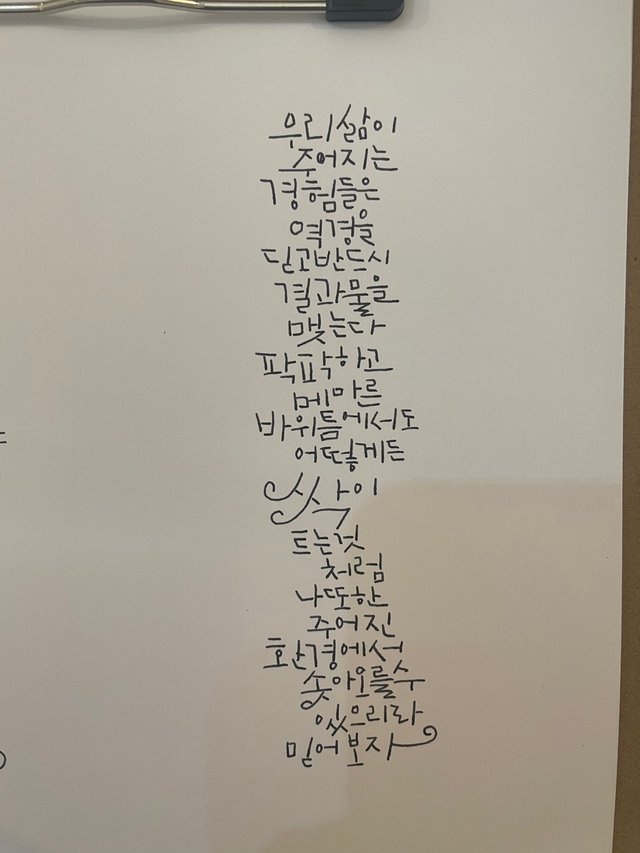 우리삶이
주어지는
경험들은
역경을
딛고반드시
결과물을
맺는다
팍팍하고
메마른
바위틈에서도
어떻게든
싹이
트는것
처럼
나또한
주어진
환경에서
솟아오를수
있으리라
믿어보자